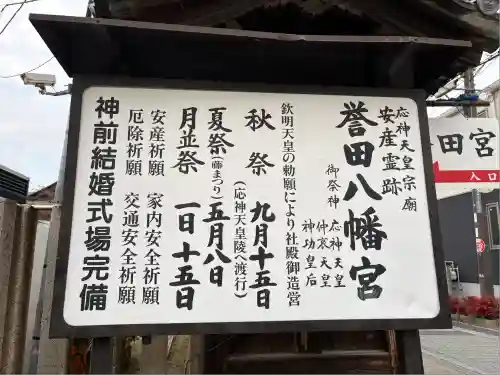 応神天皇宗廟
安産霊跡
誉田八幡宮
御祭神
応神天皇
仲哀天皇
神功皇后
欽明天皇の勅願により社殿御造営
秋祭 九月十五日
(応神天皇陵へ渡行)
夏祭(藤まつり)五月八日
月並祭 一日十五日
安産祈願 家内安全祈願
厄除祈願 交通安全祈願
神前結婚式場完備
田宮
入口